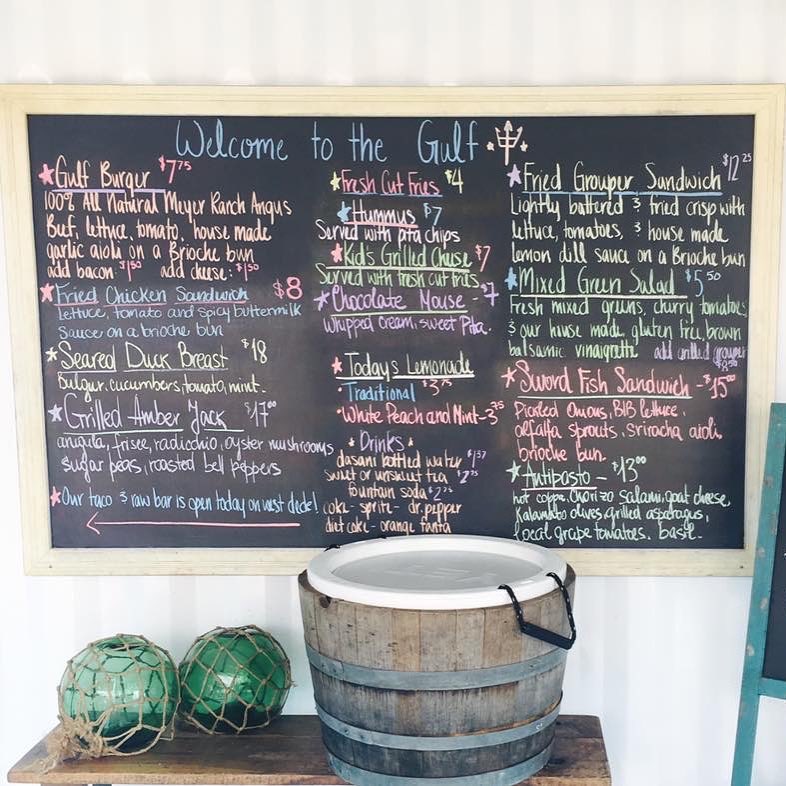 Welcome to the Gulf
Gulf Burger $7.75
100% All Natural Meyer Ranch Angus
Beef, lettuce, tomato, house made
garlic aioli on a Brioche bun
add bacon $1.50 add cheese: $1.50
Fried Chicken Sandwich $8
lettuce, tomato and spicy buttermilk
sauce on a brioche bun
Seared Duck Breast $18
Bulgur, cucumbers, tomato, mint.
Grilled Amber Jack $17.00
arugula, frisee, radicchio, oyster mushrooms
sugar peas, roasted bell peppers
Our taco & raw bar is open today on west deck!
Fresh Cut Fries $4
Hummus $7
Served with pita chips
Kid's Grilled Cheese $7
Served with fresh cut fries
Chocolate Mouse - $7
Whipped cream, sweet Pita.
Today's Lemonade
Traditional $3.75
White Peach and Mint - 3.75
Drinks
dasani bottled water $1.57
sweet or unsweet tea $2.75
fountain soda $2.75
coke - sprite - dr. pepper
diet coke - orange fanta
Fried Grouper Sandwich $12.25
Lightly battered & fried crisp with
lettuce, tomatoes, & house made
lemon dill sauce on a Brioche bun
Mixed Green Salad $5.50
Fresh mixed greens, cherry tomatoes
& our house made gluten free, brown
balsamic vinaigrette add grilled grouper
$8.50
Sword Fish Sandwich - $15.00
Pickled Onions, BIB lettuce,
alfalfa sprouts, sriracha aioli,
brioche bun.
Antipasto - $13.00
hot coppa, chorizo salami, goat cheese,
Kalamato olives, grilled asparagus,
local grape tomatoes, basil.